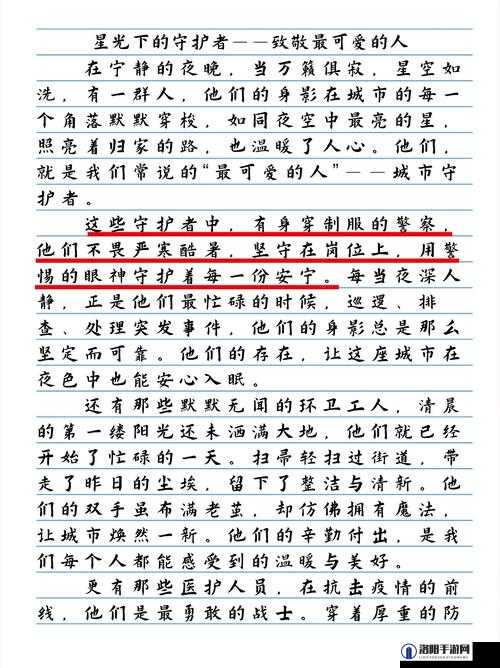 星光下的守护者——致敬最可爱的人
在宁静的夜晚，当万籁俱寂，星空如
洗，有一群人，他们的身影在城市的每一
个角落默默穿梭，如同夜空中最亮的星，
照亮着归家的路，也温暖了人心。他们，
就是我们常说的“最可爱的人”——城市守
护者。
这些守护者中，有身穿制服的警察，
他们不畏严寒酷暑，坚守在岗位上，用警
惕的眼神守护着每一份安宁。每当夜深人
静，正是他们最忙碌的时候，巡逻、排
查、处理突发事件，他们的身影总是那么
坚定而可靠。他们的存在，让这座城市在
夜色中也能安心入眠。
还有那些默默无闻的环卫工人，清晨
的第一缕阳光还未洒满大地，他们就已经
开始了忙碌的一天。扫帚轻扫过街道，带
走了昨日的尘埃，留下了整洁与清新。他
们的双手虽布满老茧，却仿佛拥有魔法，
让城市焕然一新。他们的辛勤付出，是我
们每个人都能感受到的温暖与美好。
更有那些医护人员，在抗击疫情的前
线，他们是最勇敢的战士。穿着厚重的防
洛阳手游网